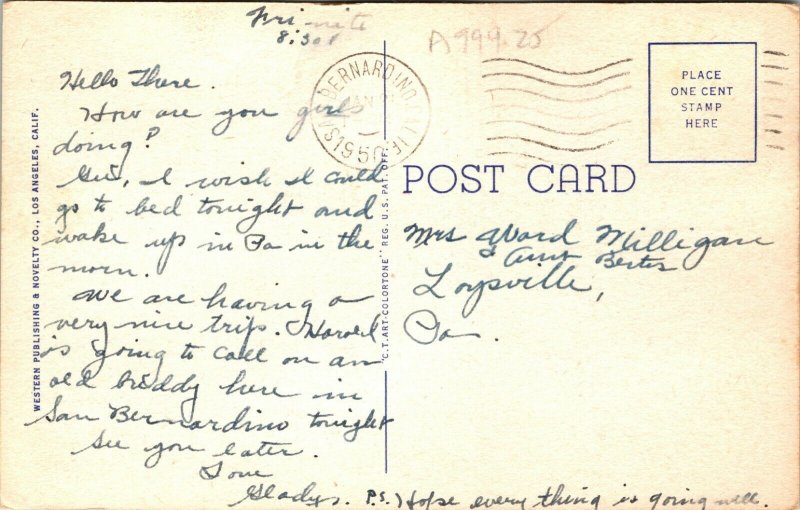 Fri nite
8:30
A999.25
Hello There.
How are you girls
doing?
Gee, I wish I could
go to bed tonight and
wake up in Pa in the
morn.
We are having a
very nice trip. Harold
is going to call on an
old buddy here in
San Bernardino tonight
See you later.
Love
Gladys. P.S.) Hope every thing is going well.
WESTERN PUBLISHING & NOVELTY CO., LOS ANGELES, CALIF.
"C.T. ART-COLORTONE" REG. U.S. PAT. OFF.
BERNARDINO
1950
POST CARD
PLACE
ONE CENT
STAMP
HERE
Mrs Ward Milligan
& Aunt
Loysville,
Pa.